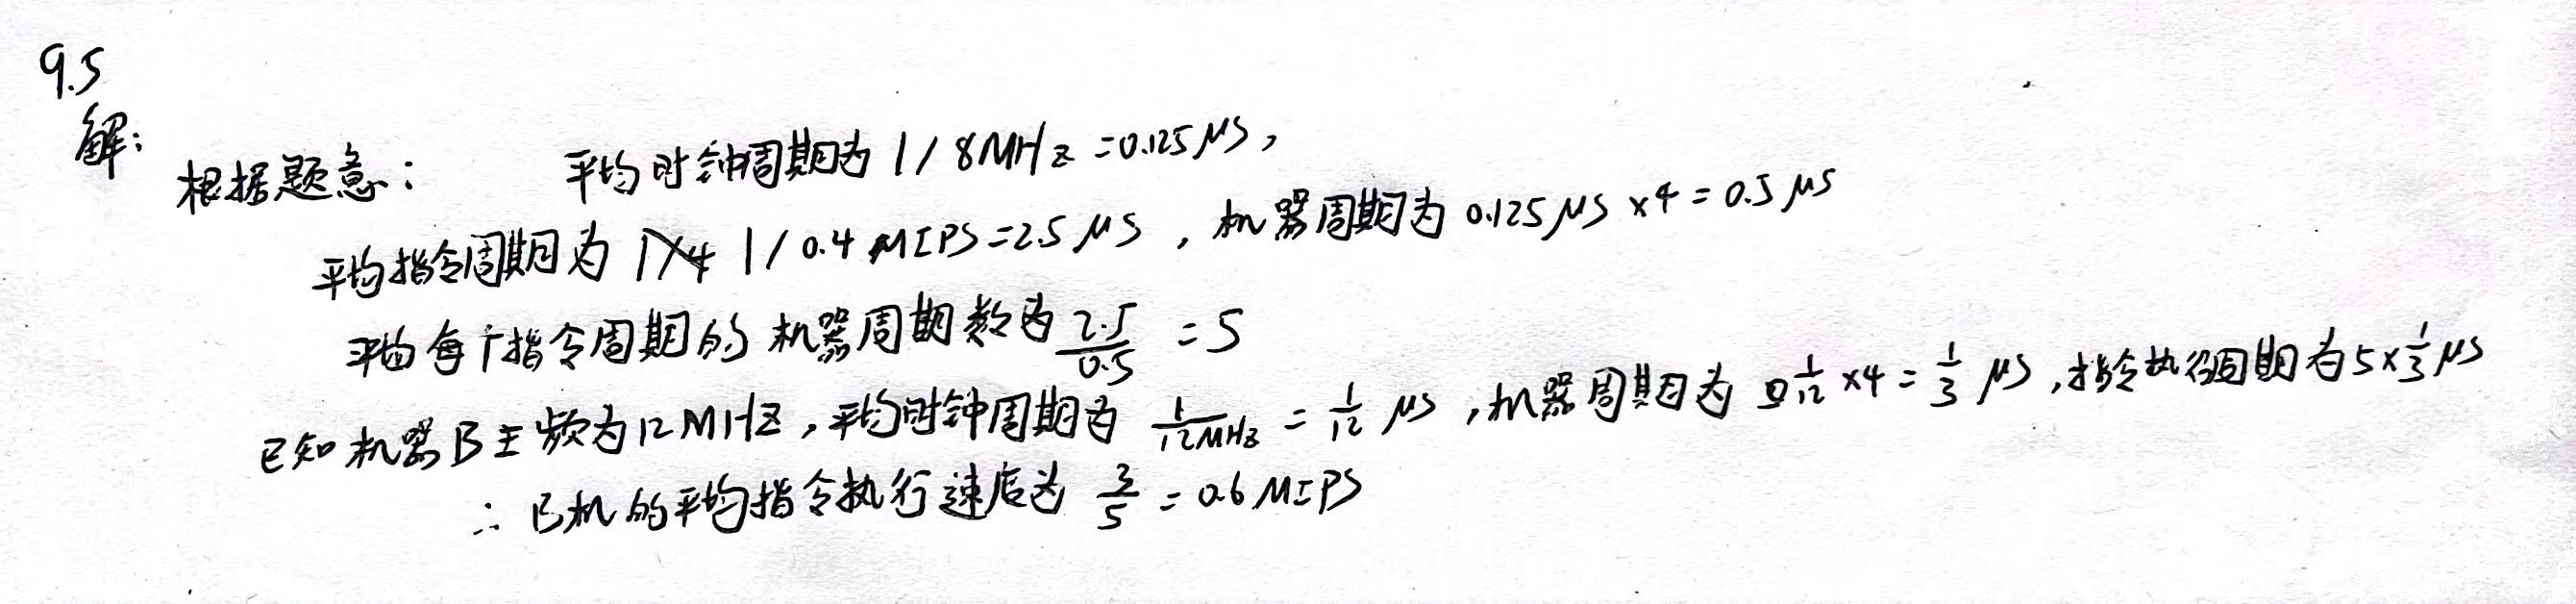 9.5
解:
根据题意: 平均时钟周期为 1/8MHz=0.125μs,
平均指令周期为 1/0.4MIPS=2.5μs, 机器周期为 0.125μs×4=0.5μs
平均每个指令周期的机器周期数为 2.5/0.5 =5
已知机器B主频为12MHZ,平均时钟周期为 1/12MHz = 1/12 μs,机器周期为 1/12×4=1/3 μs,指令执行周期为5×1/3μs
∴ B机的平均指令执行速度为 3/5 =0.6MIPS